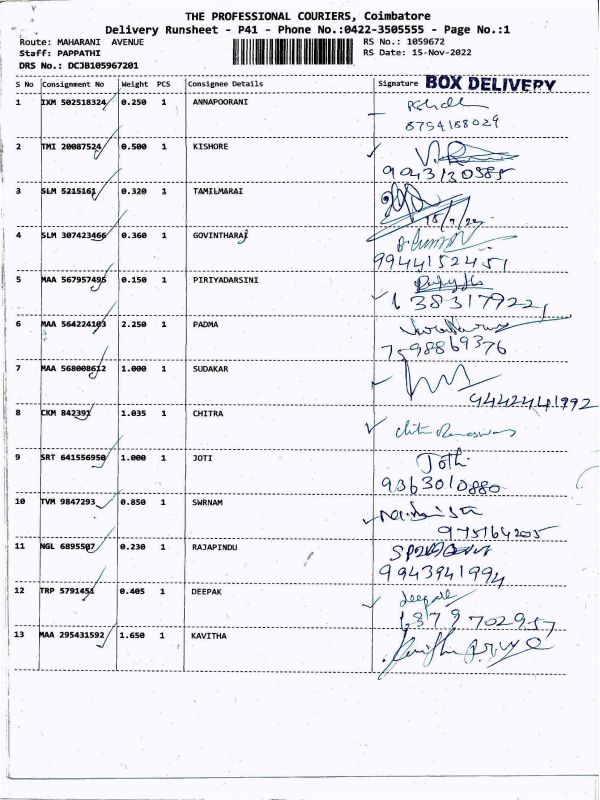 THE PROFESSIONAL COURIERS, Coimbatore
Delivery Runsheet - P41 - Phone No.:0422-3505555 - Page No.:1
Route: MAHARANI AVENUE RS No.: 1059672
Staff: PAPPATHI RS Date: 15-Nov-2022
DRS No.: DCJB105967201
S No Consignment No Weight PCS Consignee Details Signature BOX DELIVERY
1 IXM 502518324 0.250 1 ANNAPOORANI
8754188029
2 TMI 20087524 0.500 1 KISHORE
9043130385
3 SLM 5215161 0.320 1 TAMILMARAI
4 SLM 307423466 0.360 1 GOVINTHARAJ
9944152451
5 MAA 567957495 0.150 1 PIRIYADARSINI
6 MAA 564224103 2.250 1 PADMA
7598869376
7 MAA 568008612 1.000 1 SUDAKAR
9442441992
8 CKM 842391 1.035 1 CHITRA
9 SRT 641556950 1.000 1 JOTI Jothi
9363010880
10 TVM 9847293 0.850 1 SWRNAM
975164205
11 NGL 6895507 0.230 1 RAJAPINDU
9943941994
12 TRP 5791451 0.405 1 DEEPAK deepak
6379702957
13 MAA 295431592 1.650 1 KAVITHA